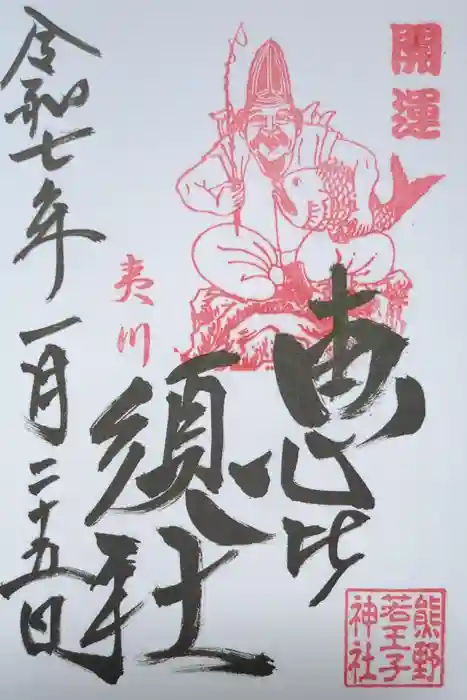 開運
恵比
須社
夷川
令和七年一月二十五日
熊野
若王子
神社